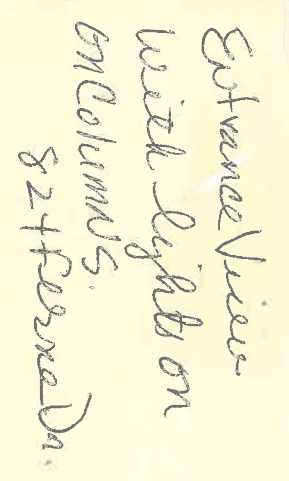 Entrance View
With lights on
on Columns
824 Ferna Dr.